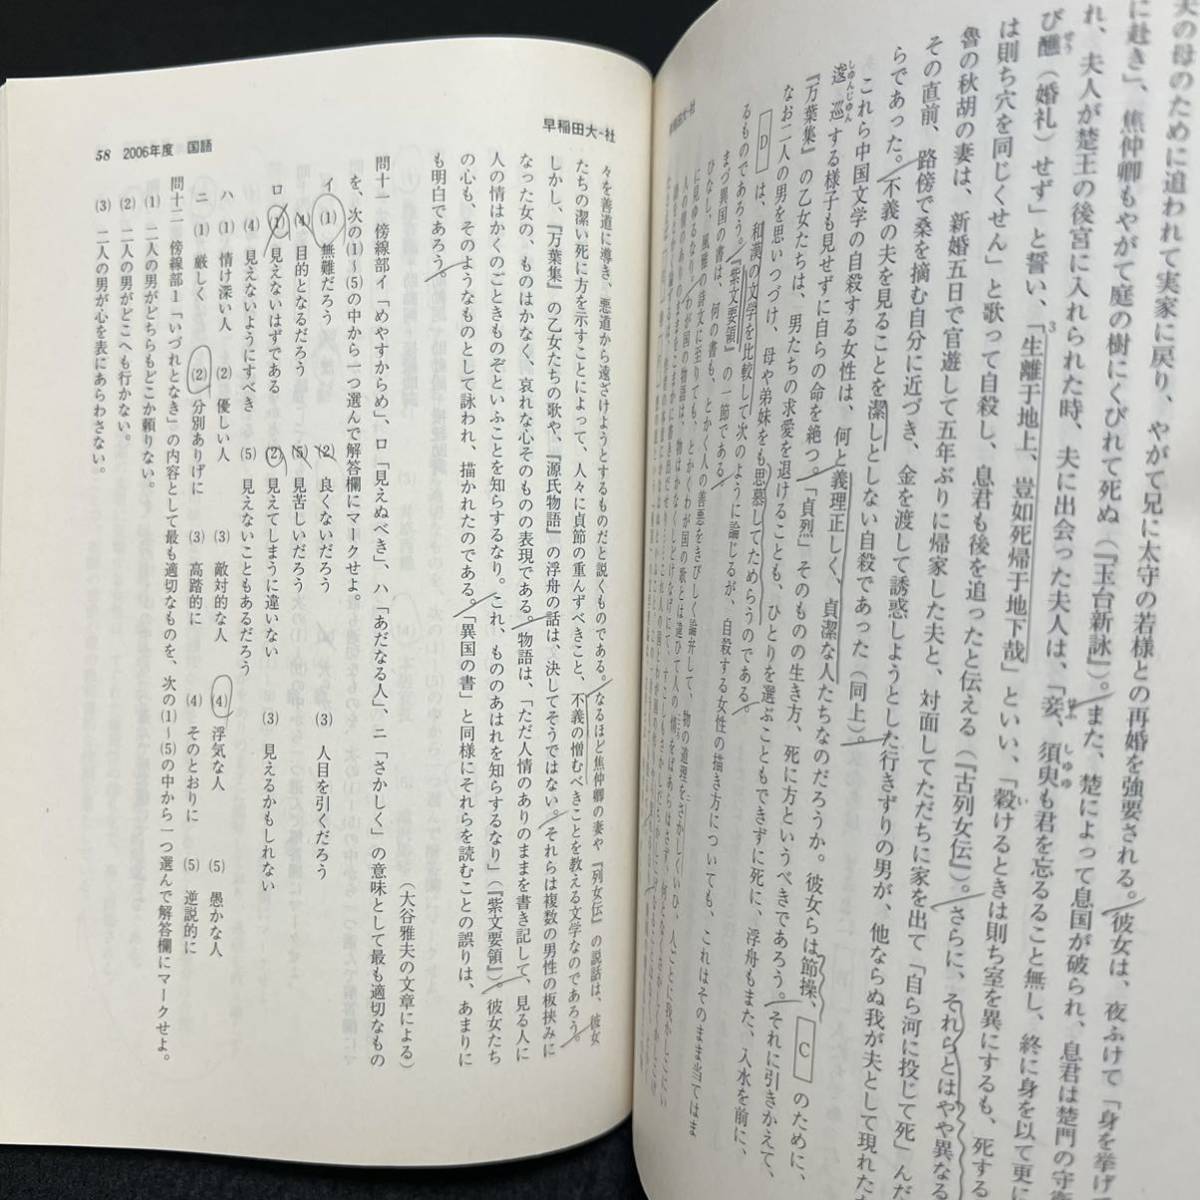 夫の母のために追われて実家に戻り、やがて兄に太守の若様との再婚を強要される。彼女は、夜ふけて「身を挙げ
に赴き」、焦仲卿もやがて庭の樹にくびれて死ぬ（『玉台新詠』）。また、楚によって息国が破られ、息君は楚門の守衛
れ、夫人が楚王の後宮に入れられた時、夫に出会った夫人は、「妾、須臾も君を忘るること無し、終に身を以て更に
び醮（婚礼）せず」と誓い、「生離于地上、豈如死帰于地下哉」といい、「穀けるときは則ち室を異にするも、死する
は則ち穴を同じくせん」と歌って自殺し、息君も後を追ったと伝える（『古列女伝』）。さらに、それらとはやや異なる
魯の秋胡の妻は、新婚五日で官遊して五年ぶりに帰家した夫と、対面してただちに家を出て「自ら河に投じて死」んだ
その直前、路傍で桑を摘む自分に近づき、金を渡して誘惑しようとした行きずりの男が、他ならぬ我が夫として現れた
らであった。不義の夫を見ることを潔しとしない自殺であった（同上）。
これら中国文学の自殺する女性は、何と義理正しく、貞潔な人たちなのだろうか。彼女らは節操、C のために、
逡巡する様子も見せずに自らの命を絶つ。「貞烈」そのものの生き方、死に方というべきであろう。それに引きかえて、
『万葉集』の乙女たちは、男たちの求愛を退けることも、ひとりを選ぶこともできずに死に、浮舟もまた、入水を前に、
なお二人の男を思いつづけ、母や弟妹をも思慕してためらうのである。
D は、和漢の文学を比較して次のように論じるが、自殺する女性の描き方についても、これはそのまま当てはま
るものであろう。『紫文要領』の一節である。
まづ異国の書は、何の書も、とかく人の善悪をきびしく論弁して、物の道理をさかしくいひ、人ごとに我がしこに
ひなし、風雅の詩文に至りても、
早稲田大-社
58 2006年度 国語
々を善道に導き、悪道から遠ざけようとするものだと説くものである。なるほど焦仲卿の妻や『列女伝』の説話は、彼女
たちの潔い死に方を示すことによって、人々に貞節の重んずべきこと、不義の憎むべきことを教える文学なのであろう。
しかし、『万葉集』の乙女たちの歌や、『源氏物語』の浮舟の話は、決してそうではない。それらは複数の男性の板挟みに
なった女の、ものはかなく、哀れな心そのものの表現である。物語は、「ただ人情のありのままを書き記して、見る人に
人の情はかくのごときものぞといふことを知らするなり。これ、もののあはれを知らするなり」（『紫文要領』）。彼女たち
の心も、そのようなものとして詠われ、描かれたのである。「異国の書」と同様にそれらを読むことの誤りは、あまりに
も明白であろう。
（大谷雅夫の文章による）
問十一 傍線部イ「めやすからめ」、ロ「見えぬべき」、ハ「あだなる人」、ニ「さかしく」の意味として最も適切なもの
を、次の(1)～(5)の中から一つ選んで解答欄にマークせよ。
イ (1) 無難だろう (2) 良くないだろう (3) 人目を引くだろう
(4) 目的となるだろう (5) 見苦しいだろう
ロ (1) 見えないはずである (2) 見えてしまうに違いない (3) 見えるかもしれない
(4) 見えないようにすべき (5) 見えないこともあるだろう
ハ (1) 情け深い人 (2) 優しい人 (3) 敵対的な人 (4) 浮気な人 (5) 愚かな人
ニ (1) 厳しく (2) 分別ありげに (3) 高踏的に (4) そのとおりに (5) 逆説的に
問十二 傍線部1「いづれとなき」の内容として最も適切なものを、次の(1)～(5)の中から一つ選んで解答欄にマークせよ。
(1) 二人の男がどちらもどこか頼りない。
(2) 二人の男がどこへも行かない。
(3) 二人の男が心を表にあらわさない。